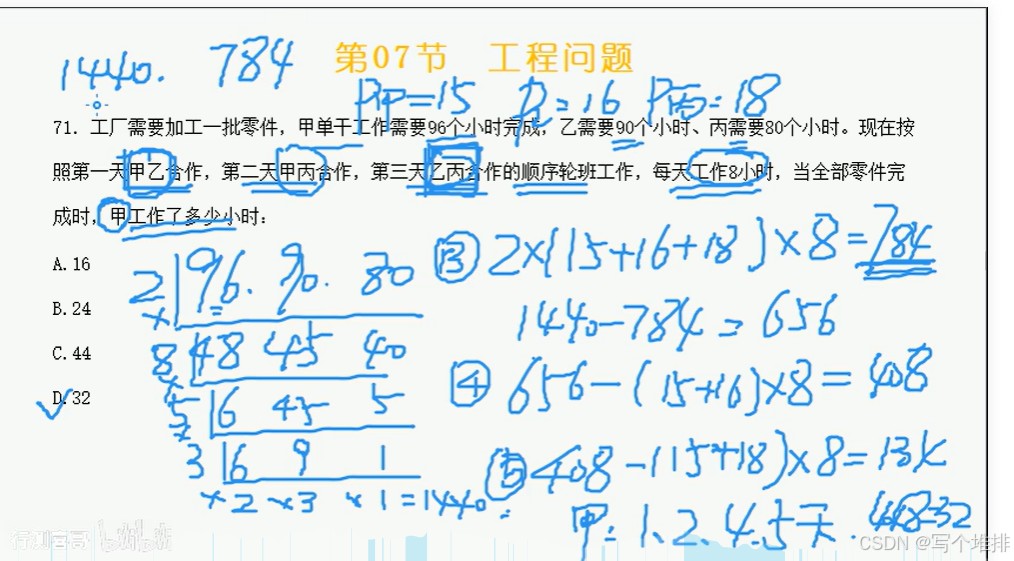 第07节 工程问题
1440. 784
P甲=15 P乙=16 P丙=18
71. 工厂需要加工一批零件，甲单干工作需要96个小时完成，乙需要90个小时、丙需要80个小时。现在按
照第一天甲乙合作，第二天甲丙合作，第三天乙丙合作的顺序轮班工作，每天工作8小时，当全部零件完
成时，甲工作了多少小时：
A.16
B.24
C.44
D.32
2 96. 90. 80
×
8 48 45 40
×
5 6 45 5
×
3 6 9 1
×2 ×3 ×1=1440
③ 2×(15+16+18)×8=784
1440-784=656
④ 656-(15+16)×8=408
⑤ 408-(15+18)×8=
甲: 1、2、4、5天. 4×8=32
CSDN @写个堆排